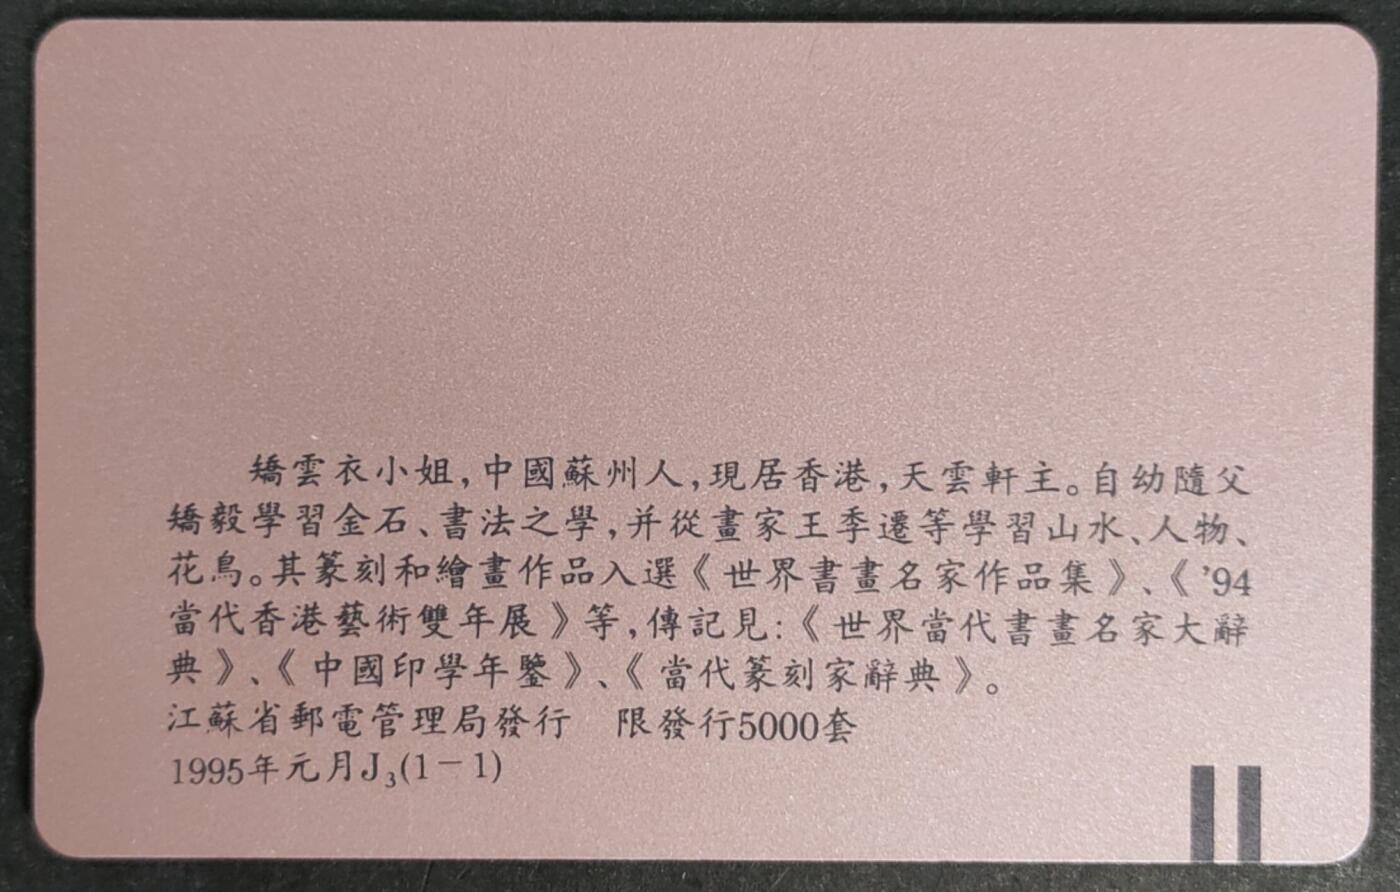 矯雲衣小姐，中國蘇州人，現居香港，天雲軒主。自幼隨父
矯毅學習金石、書法之學，并從畫家王季遷等學習山水、人物、
花鳥。其篆刻和繪畫作品入選《世界書畫名家作品集》、《'94
當代香港藝術雙年展》等，傳記見：《世界當代書畫名家大辭
典》、《中國印學年鑒》、《當代篆刻家辭典》。
江蘇省郵電管理局發行　限發行5000套
1995年元月J₃(1－1)